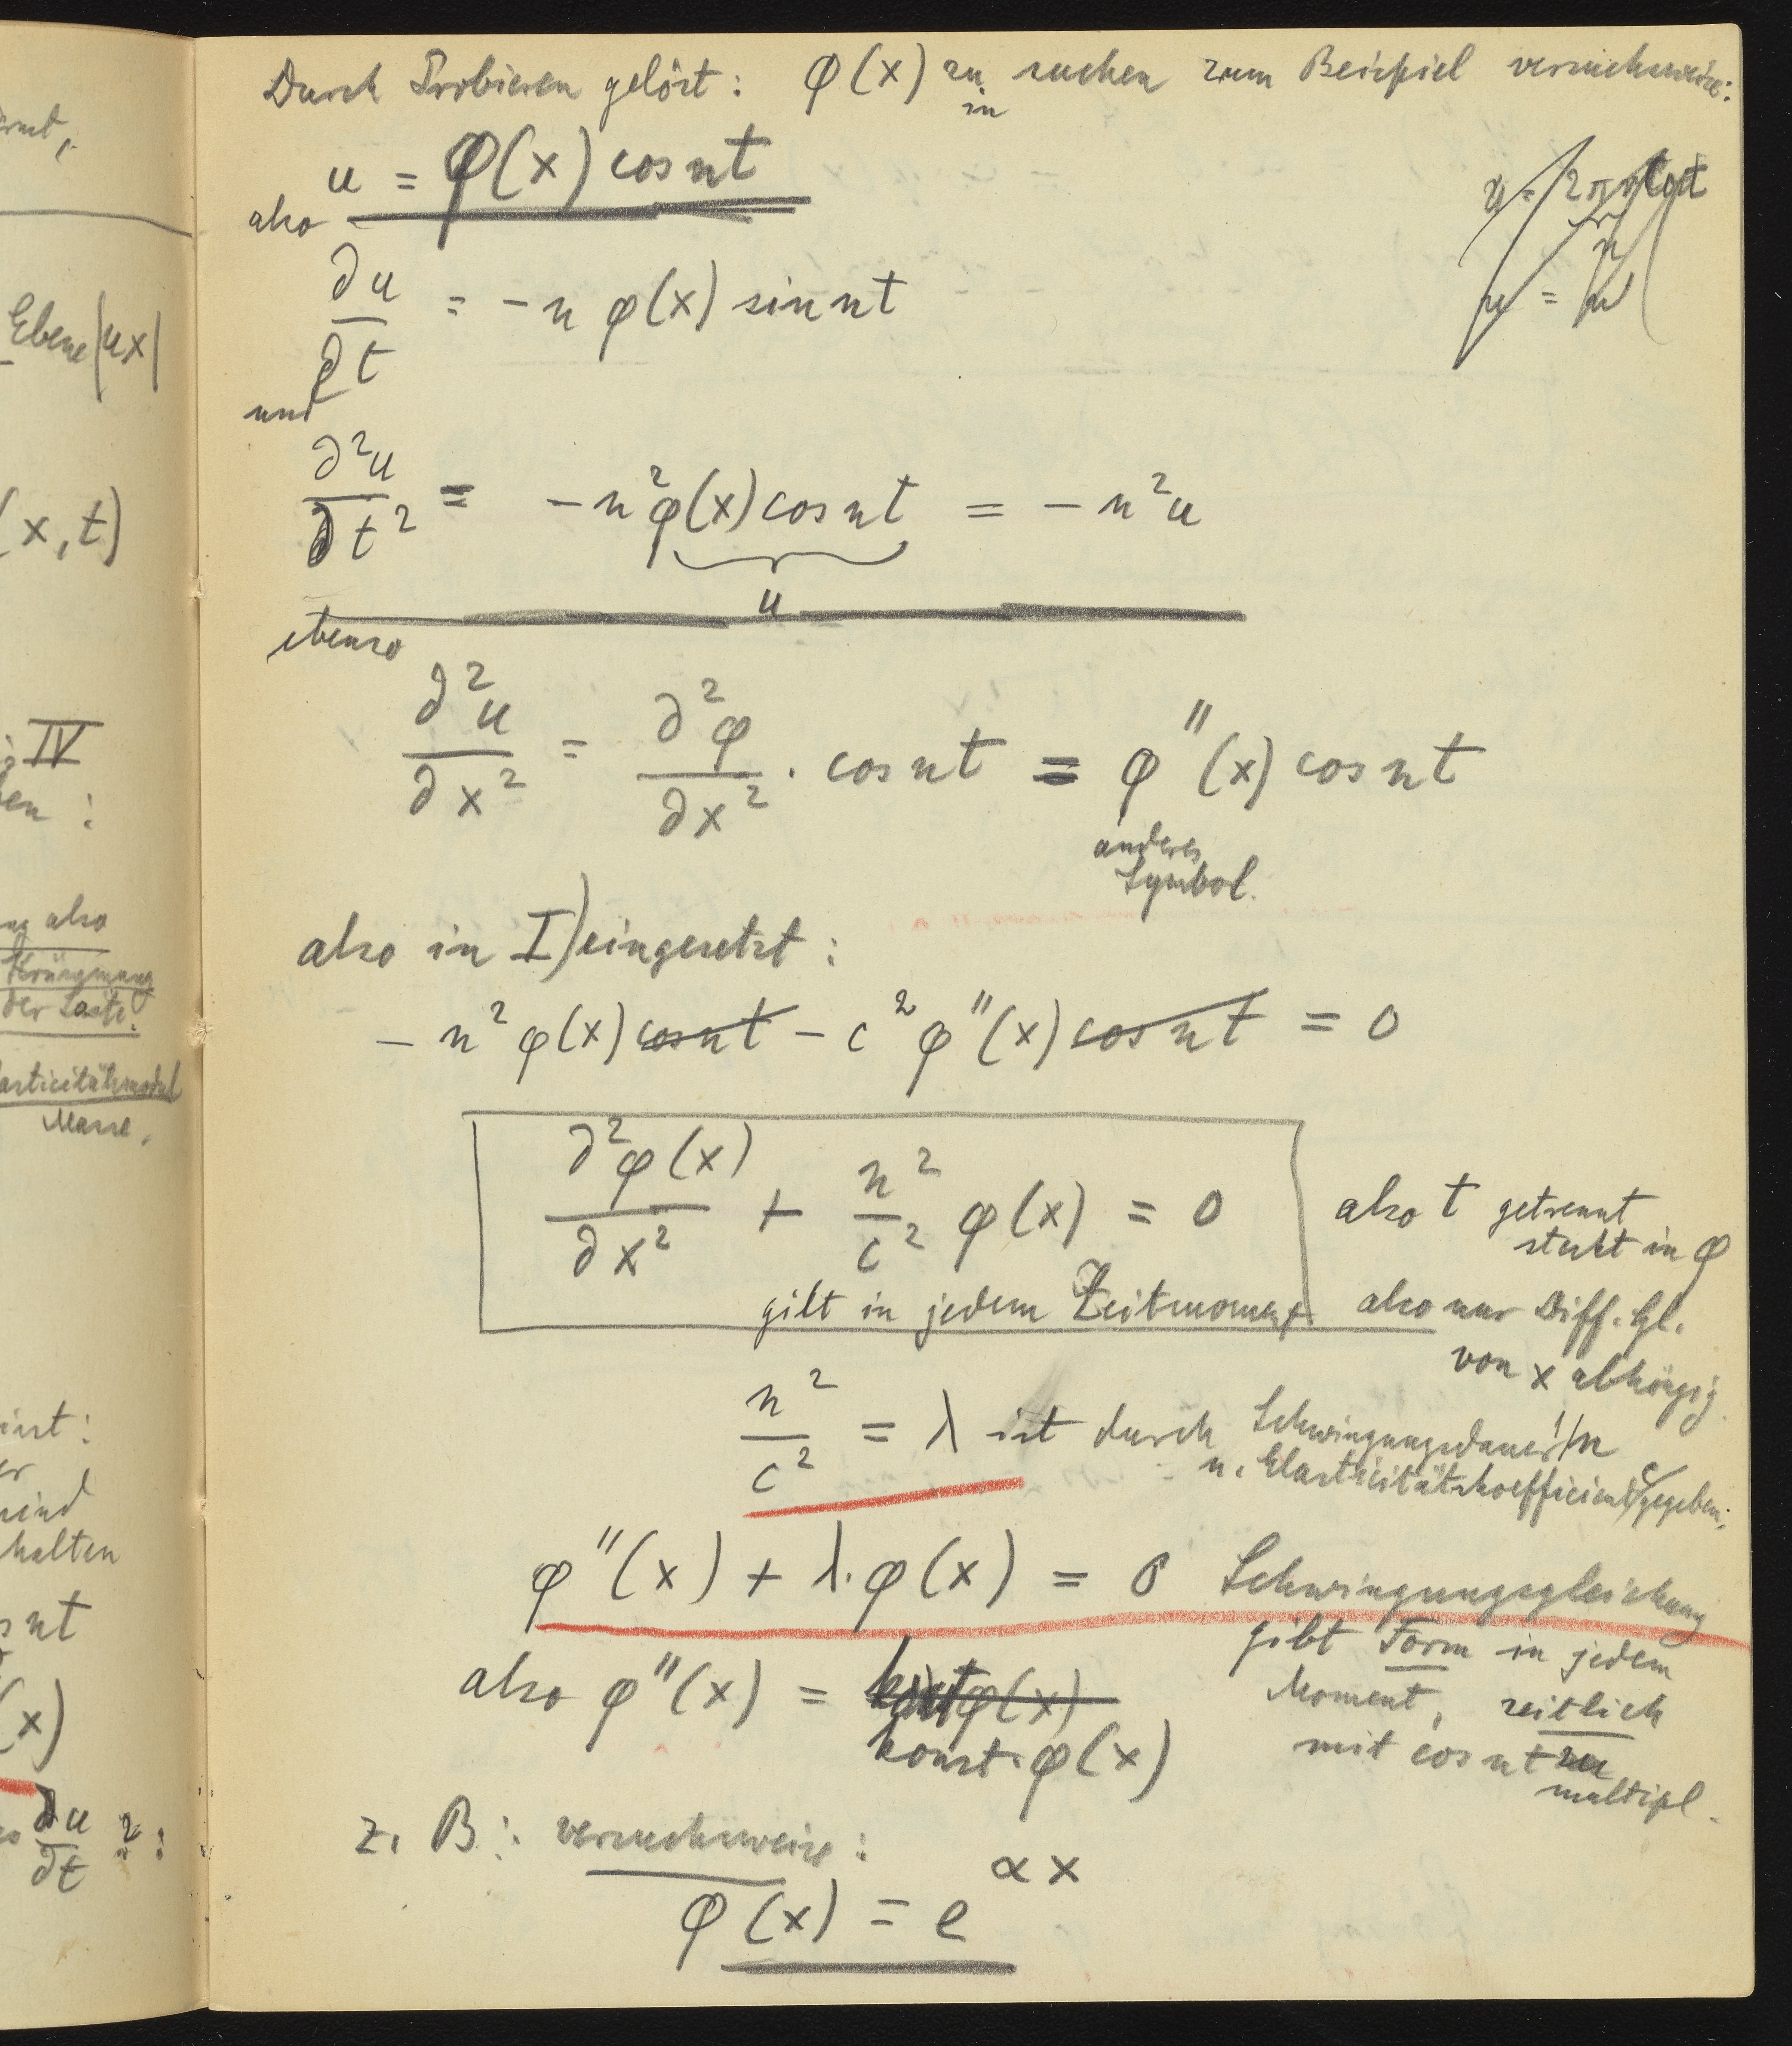 Durch Probieren gelöst: φ(x) zu suchen zum Beispiel versuchsweise:
in
u = φ(x) cos nt
also
∂u/∂t = -n φ(x) sin nt
und
∂²u/∂t² = -n²φ(x) cos nt = -n²u
u
ebenso
∂²u/∂x² = ∂²φ/∂x² · cos nt = φ''(x) cos nt
anderes
Symbol.
also in I) eingesetzt:
-n²φ(x) cos nt - c²φ''(x) cos nt = 0
∂²φ(x)/∂x² + n²/c² φ(x) = 0
also t getrennt
steckt in φ
gilt in jedem Zeitmoment also nur Diff. Gl.
von x abhängig
n²/c² = λ ist durch Schwingungsdauer 1/n
u. Elasticitätskoefficient c gegeben.
φ''(x) + λ·φ(x) = 0 Schwingungsgleichung
gibt Form in jedem
Moment, zeitlich
mit cos nt zu
multipl.
also φ''(x) =
konst·φ(x)
z. B: versuchsweise:
φ(x) = e^αx
Ebene (ux)
(x,t)
IV
also
Krümmung
der Saite.
Masse.
ind
halten
nt
(x)
∂u/∂t ? :